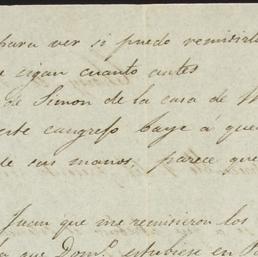 para ver si puedo remisirla
e cigan cuanto antes
de Simon de la casa de
este cangrefo baye á que
de sus manos, parece que
Juan que me remisieron los
que Dom.º estubiese en